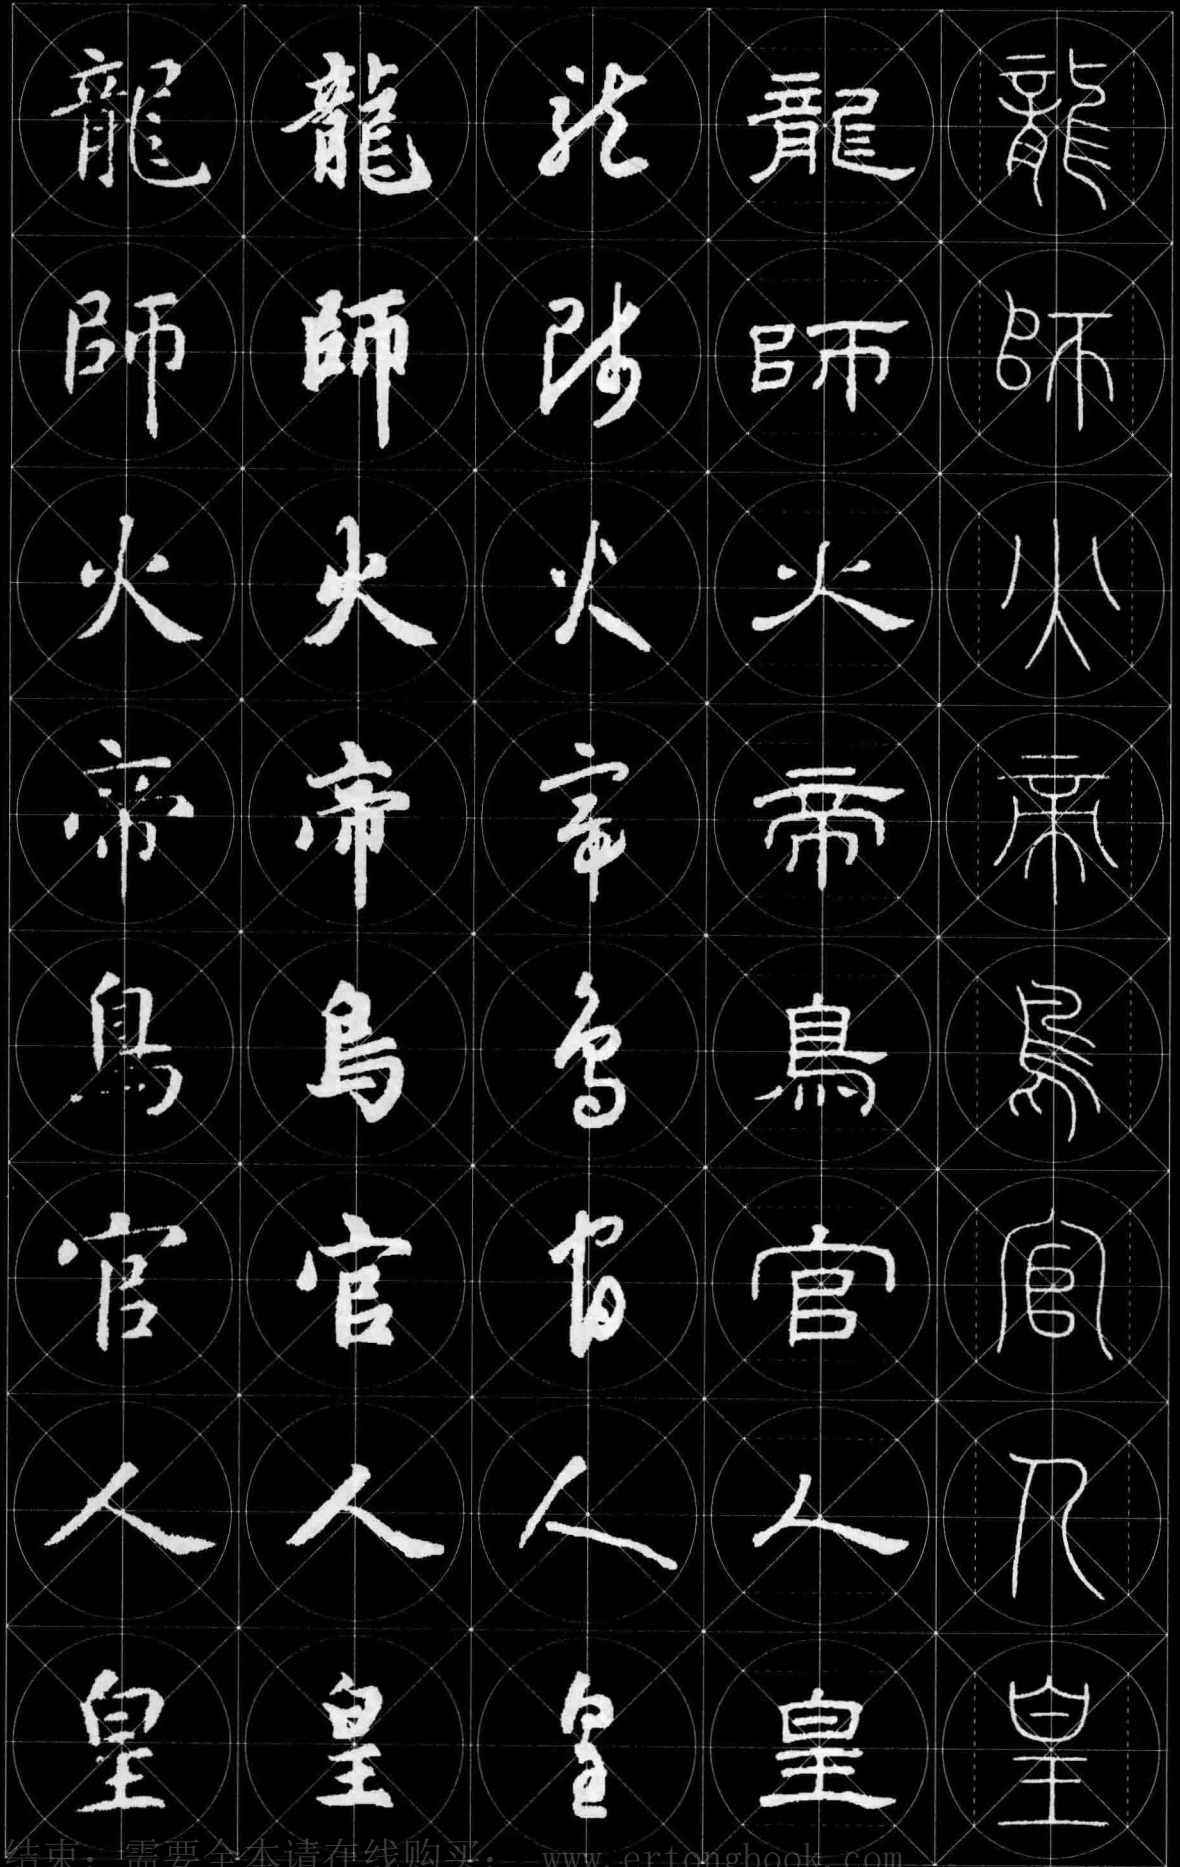 龍師火帝鳥官人皇
龍師火帝鳥官人皇
龍師火帝鳥官人皇
龍師火帝鳥官人皇
龍師火帝鳥官人皇
结束：需要全本请在线购买： www.ertongbook.com